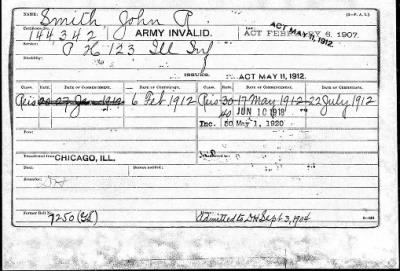 NAME: Smith John R. (3-P. A. I.)
Certificate No. 144342 ARMY INVALID. Law: ACT FEBRUARY 6, 1907. ACT MAY 11, 1912.
Service: P K 123 Ill Inf
Disability:
ISSUES. ACT MAY 11, 1912.
CLASS. DATE OF COMMENCEMENT. DATE OF CERTIFICATE. CLASS. DATE OF COMMENCEMENT. DATE OF CERTIFICATE.
Reis 6 Feb 1912 Reis 30-17 May 1912 22 July 1912
40 JUN 10 1918
Inc. 50 May 1, 1920
From:
Transferred from CHICAGO, ILL.
Date: Bureau notified:
Remarks: DH
Former Roll No. 7250 Admitted to DH Sept 3, 1904